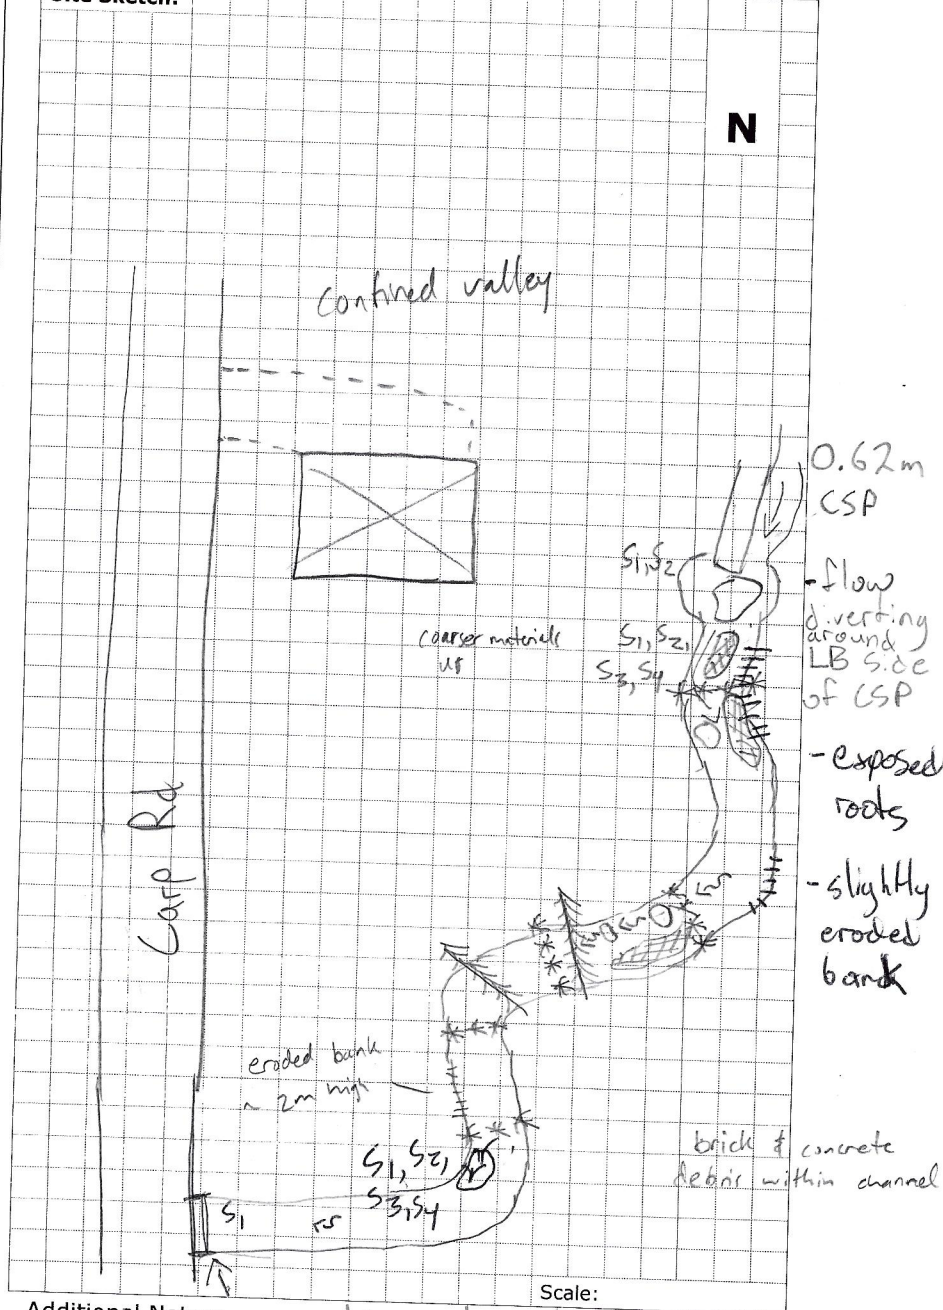 Site Sketch:
N
Confined valley
0.62m
CSP
S1, S2
-flow
diverting
around
LB side
of CSP
coarser materials
us
S1, S2,
S3, S4
-exposed
roots
Carp Rd
-slightly
eroded
bank
eroded bank
~ 2m high
brick & concrete
debris within channel
S1, S2,
S3, S4
S1
Scale: